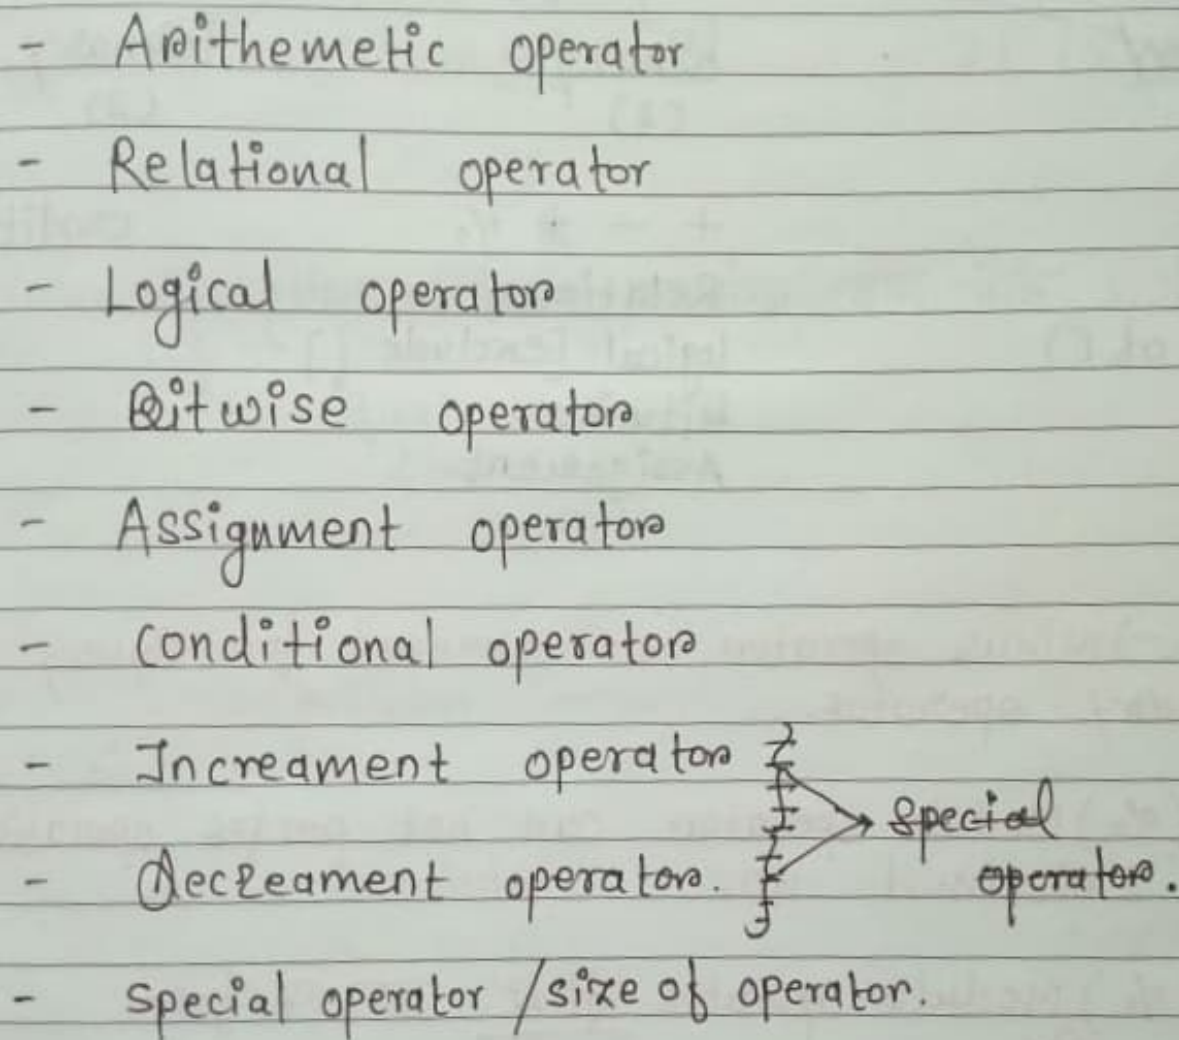 - Arithemetic operator
- Relational operator
- Logical operator
- Bitwise operator
- Assignment operator
- Conditional operator
- Increament operator
→ special
- decreament operator. operator.
- special operator / size of operator.